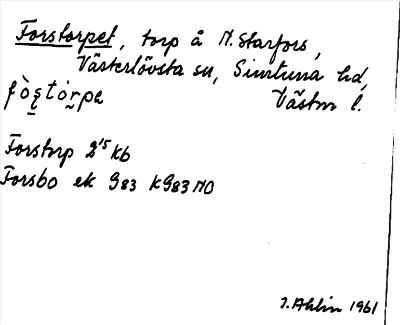 Forstorpet, torp å N. Starfors,
Västerlövsta sn, Simtuna hd,
fòs̠tór̠pe Västm l.
Forstorp 2¹⁵ kb
Forsbo ek G83 KG83 NO
J. Ahlin 1961